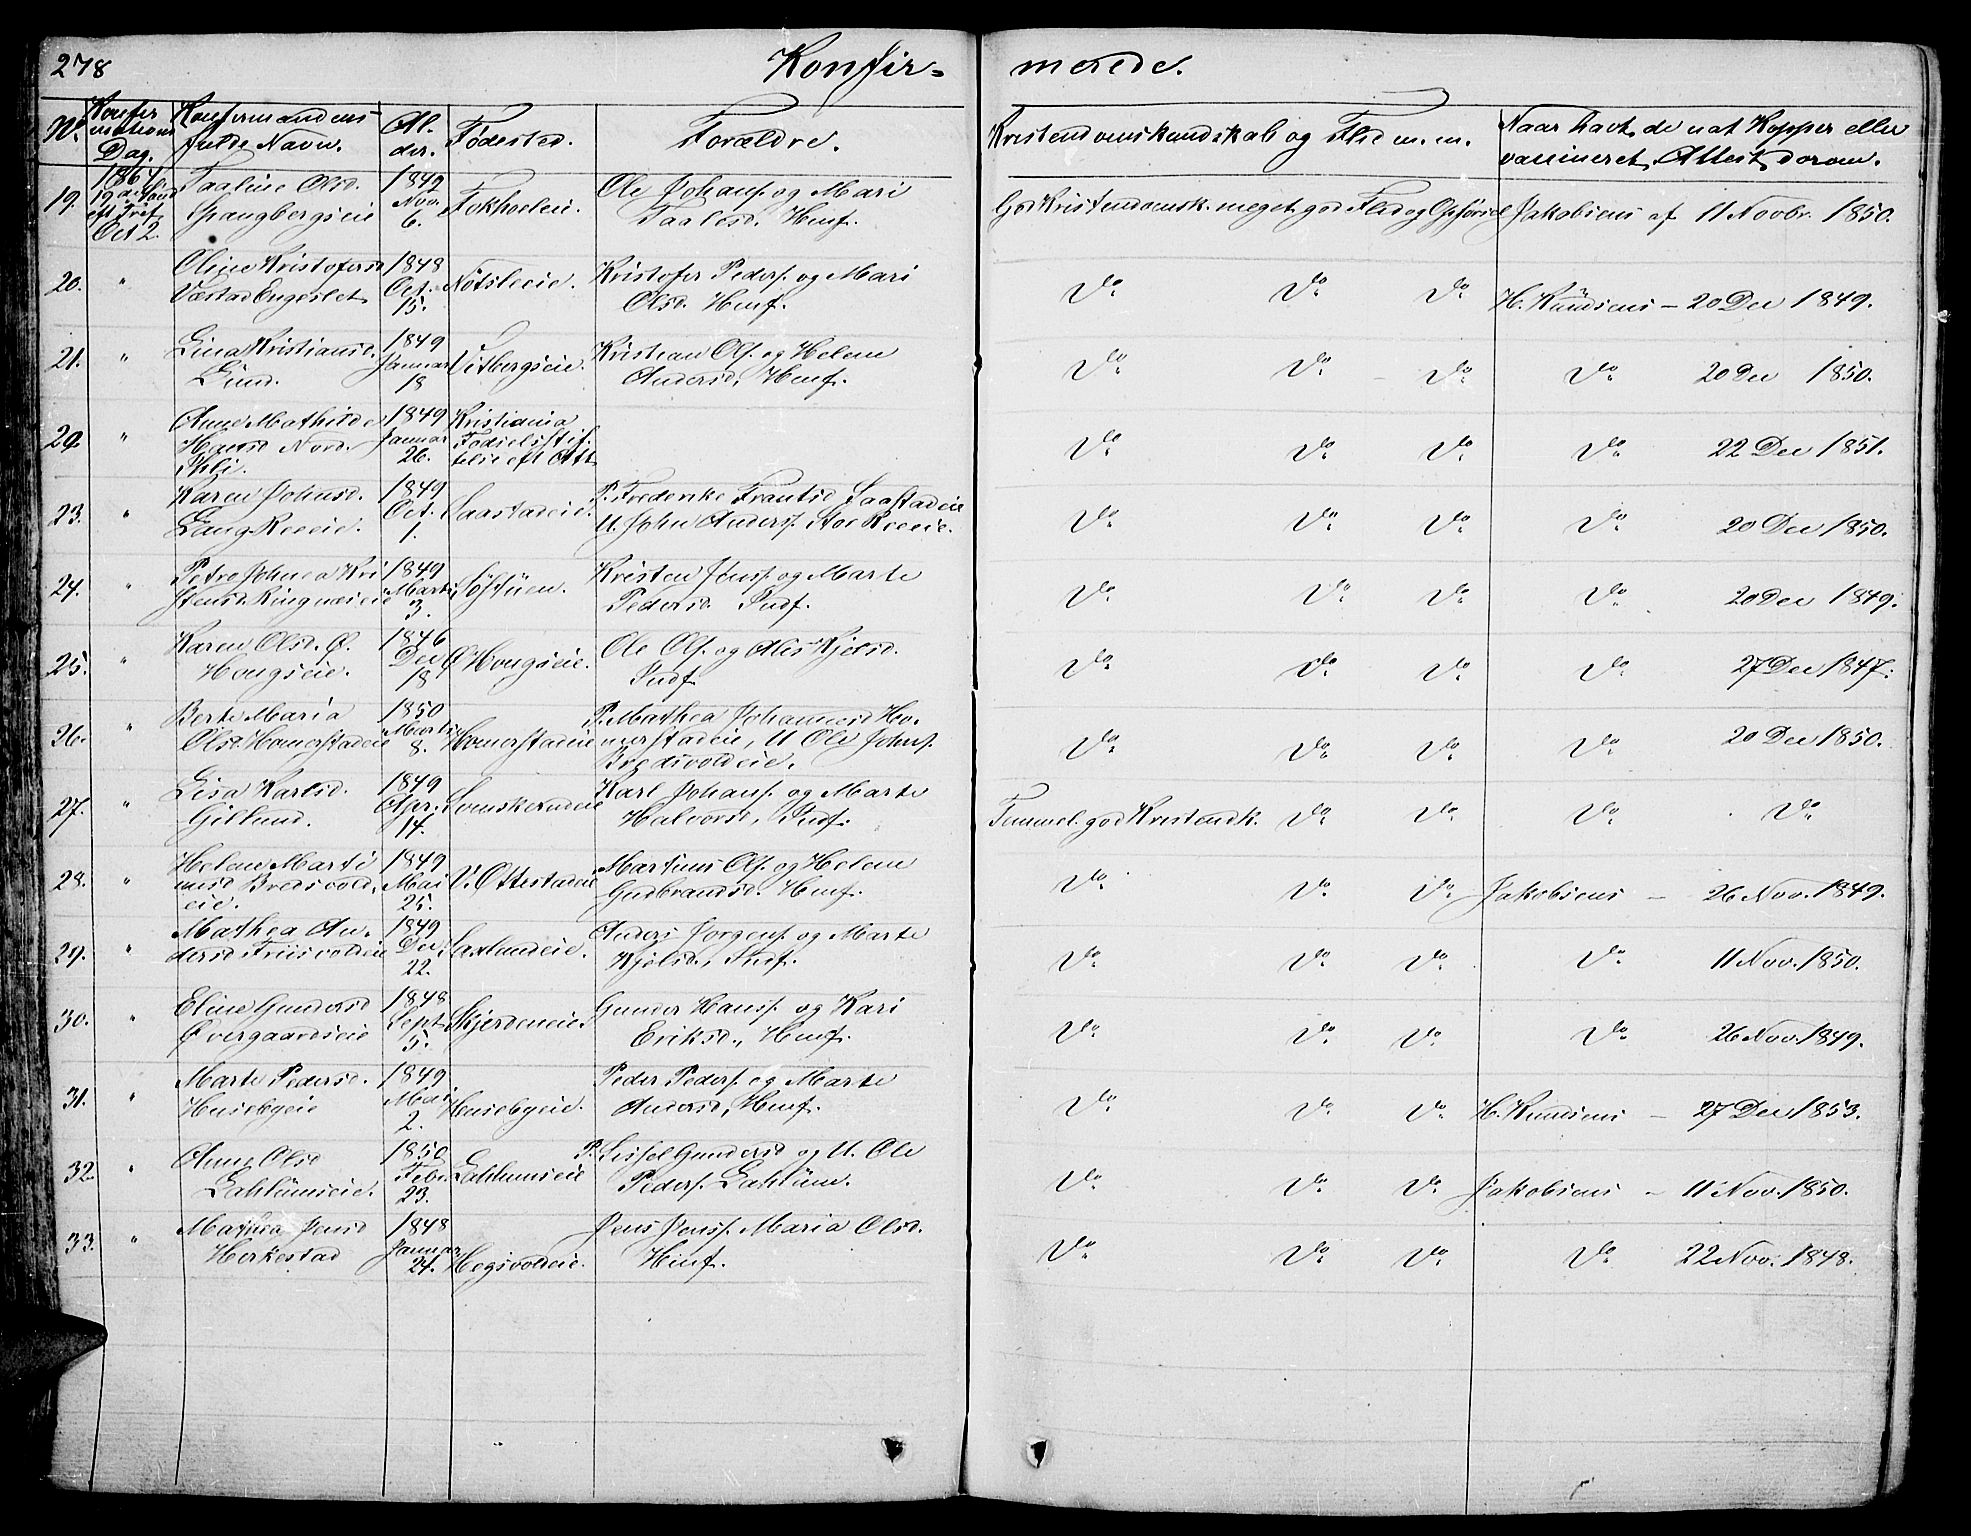 278
Konfir= merede.
No. Konfirmations Dag. Konfirmandens fulde Navn. Alder. Fødested. Forældre. Kristendomskundskab og Flid m. m. Naar havt de nat. Kopper eller vaccineret, Attest derom.
19. 1864 Oct 2. Taaline Olsd. Spangbergseie 1849 Nov. 6. Fokholeie. Ole Johansf. og Mari Taalesd. Hemf. God Kristendomsk. meget god Flid og Opførsel Jakobsens af 11 Novbr. 1850.
20. " Oline Kristofersd. Væstad Engeslet 1848 Oct. 15. Nötsleeie. Kristofer Pedersf. og Mari Olsd. Hemf. Do. Do. Do. H. Knudsens — 20 Dec 1849.
21. " Lina Kristiansd. Lund. 1849 Januar 18 Vitbergseie. Kristian Olsf. og Helene Andersd, Hemf. Do. Do. Do. Do. 20 Dec 1850.
22 " Anne Mathilde Hansd Nord. Ihli. 1849 Januar 26. Kristiania Fødselsstiftelse eft Att. Do. Do. Do. Do. 22 Dec 1851.
23. " Karen Johnsd. Lang Reeeie. 1849 Oct. 1. Saastadeie. P. Frederike Frantsd Saastadeie U. John Andersf. Stor Reeeie. Do. Do. Do. Do. 20 Dec 1850.
24. " Petre Johnea Kristensd. Ringnæseie 1849 Marts 3. Kristen Jensf. og Marte Pedersd. Indf. Do. Do. Do. Do. 20 Dec 1849.
25. " Karen Olsd. Ø. Hougseie. 1846 Dec 18 Ø Hougseie. Ole Olsf. og Alis Kjelsd. Indf. Do. Do. Do. Do. 27 Dec 1847.
26. " Berte Maria Olsd. Homerstadeie 1850 Marts 8. Homerstadeie P. Mathea Johannesd Homerstadeie, U Ole Johnsf. Bredsvoldeie. Do. Do. Do. Do. 20 Dec 1850.
27. " Lisa Karlsd. Gillund. 1849 Apr. 14. Svenskerudeie Karl Johansf. og Marte Halvorsd, Indf. Temmel. god Kristendk. Do. Do. Do. Do.
28. " Helene Martinusd Bredsvoldeie. 1849 Mai 25. V. Ottestadeie Martinus Olsf. og Helene Gudbrandsd. Hemf. Do. Do. Do. Jakobsens — 26 Nov. 1849.
29. " Mathea Andersd Friisvoldeie 1849 Dec 22. Saxlundeie. Anders Jörgensf. og Marte Kjelsd., Indf. Do. Do. Do. Do. 11 Nov. 1850.
30. " Eline Gundersd Øvergaardseie 1848 Sept. 5. Skjerdeneie Gunder Hansf. og Kari Eriksd., Hemf. Do. Do. Do. Do. 26 Nov. 1849.
31. " Marte Pedersd. Husebyeie 1849 Mai 2. Husebyeie. Peder Pedersf. og Marte Andersd, Hemf. Do. Do. Do. H. Knudsens — 27 Dec 1853.
32. " Anne Olsd Lahlumseie. 1850 Feb. 23. Lahlumseie P. Sissel Gundersd og U. Ole Pedersf. Lahlum. Do. Do. Do. Jakobsens — 11 Nov. 1850.
33. " Mathea Jensd Herkestad 1848 Januar 21. Hegsvoldeie. Jens Jensf. Maria Olsd. Hemf. Do. Do. Do. Do. 22 Nov. 1848.